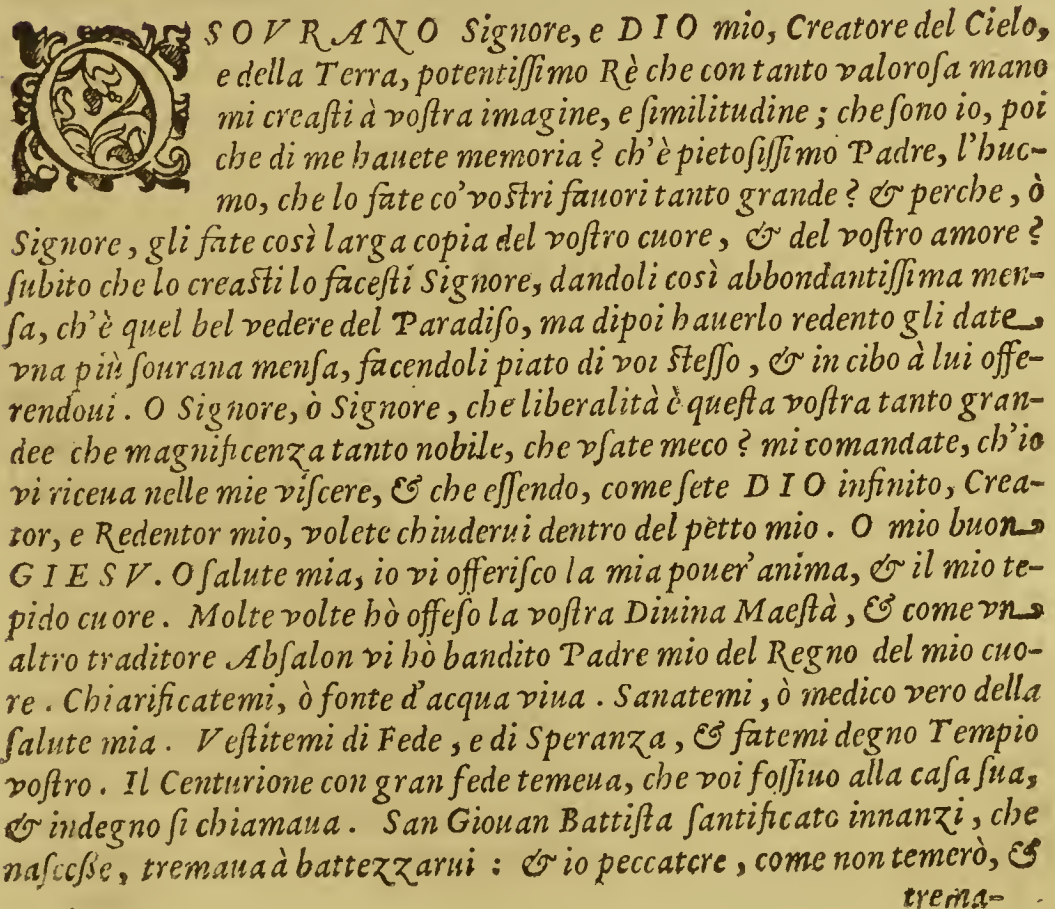 O SOVRANO Signore, e DIO mio, Creatore del Cielo,
e della Terra, potentiſſimo Rè che con tanto valoroſa mano
mi creaſti à voſtra imagine, e ſimilitudine ; che ſono io, poi
che di me hauete memoria ? ch'è pietoſiſſimo Padre, l'huc-
mo, che lo fate co' voſtri fauori tanto grande ? & perche, ò
Signore, gli fate così larga copia del voſtro cuore, & del voſtro amore ?
ſubito che lo creaſti lo faceſti Signore, dandoli così abbondantiſſima men-
ſa, ch'è quel bel vedere del Paradiſo, ma dipoi hauerlo redento gli date
vna più ſourana menſa, facendoli piato di voi ſteſſo, & in cibo à lui offe-
rendoui. O Signore, ò Signore, che liberalità è queſta voſtra tanto gran-
dee che magnificenza tanto nobile, che vſate meco ? mi comandate, ch'io
vi riceua nelle mie viſcere, & che eſſendo, come ſete DIO infinito, Crea-
tor, e Redentor mio, volete chiuderui dentro del petto mio. O mio buon
GIESV. O ſalute mia, io vi offeriſco la mia pouer' anima, & il mio te-
pido cuore. Molte volte hò offeſo la voſtra Diuina Maeſtà, & come vn
altro traditore Abſalon vi hò bandito Padre mio del Regno del mio cuo-
re. Chiarificatemi, ò fonte d'acqua viua. Sanatemi, ò medico vero della
ſalute mia. Veſtitemi di Fede, e di Speranza, & fatemi degno Tempio
voſtro. Il Centurione con gran fede temeua, che voi foſſiuo alla caſa ſua,
& indegno ſi chiamaua. San Giouan Battiſta ſantificato innanzi, che
naſceſſe, tremaua à battezzarui : & io peccatore, come non temerò, &
trema-